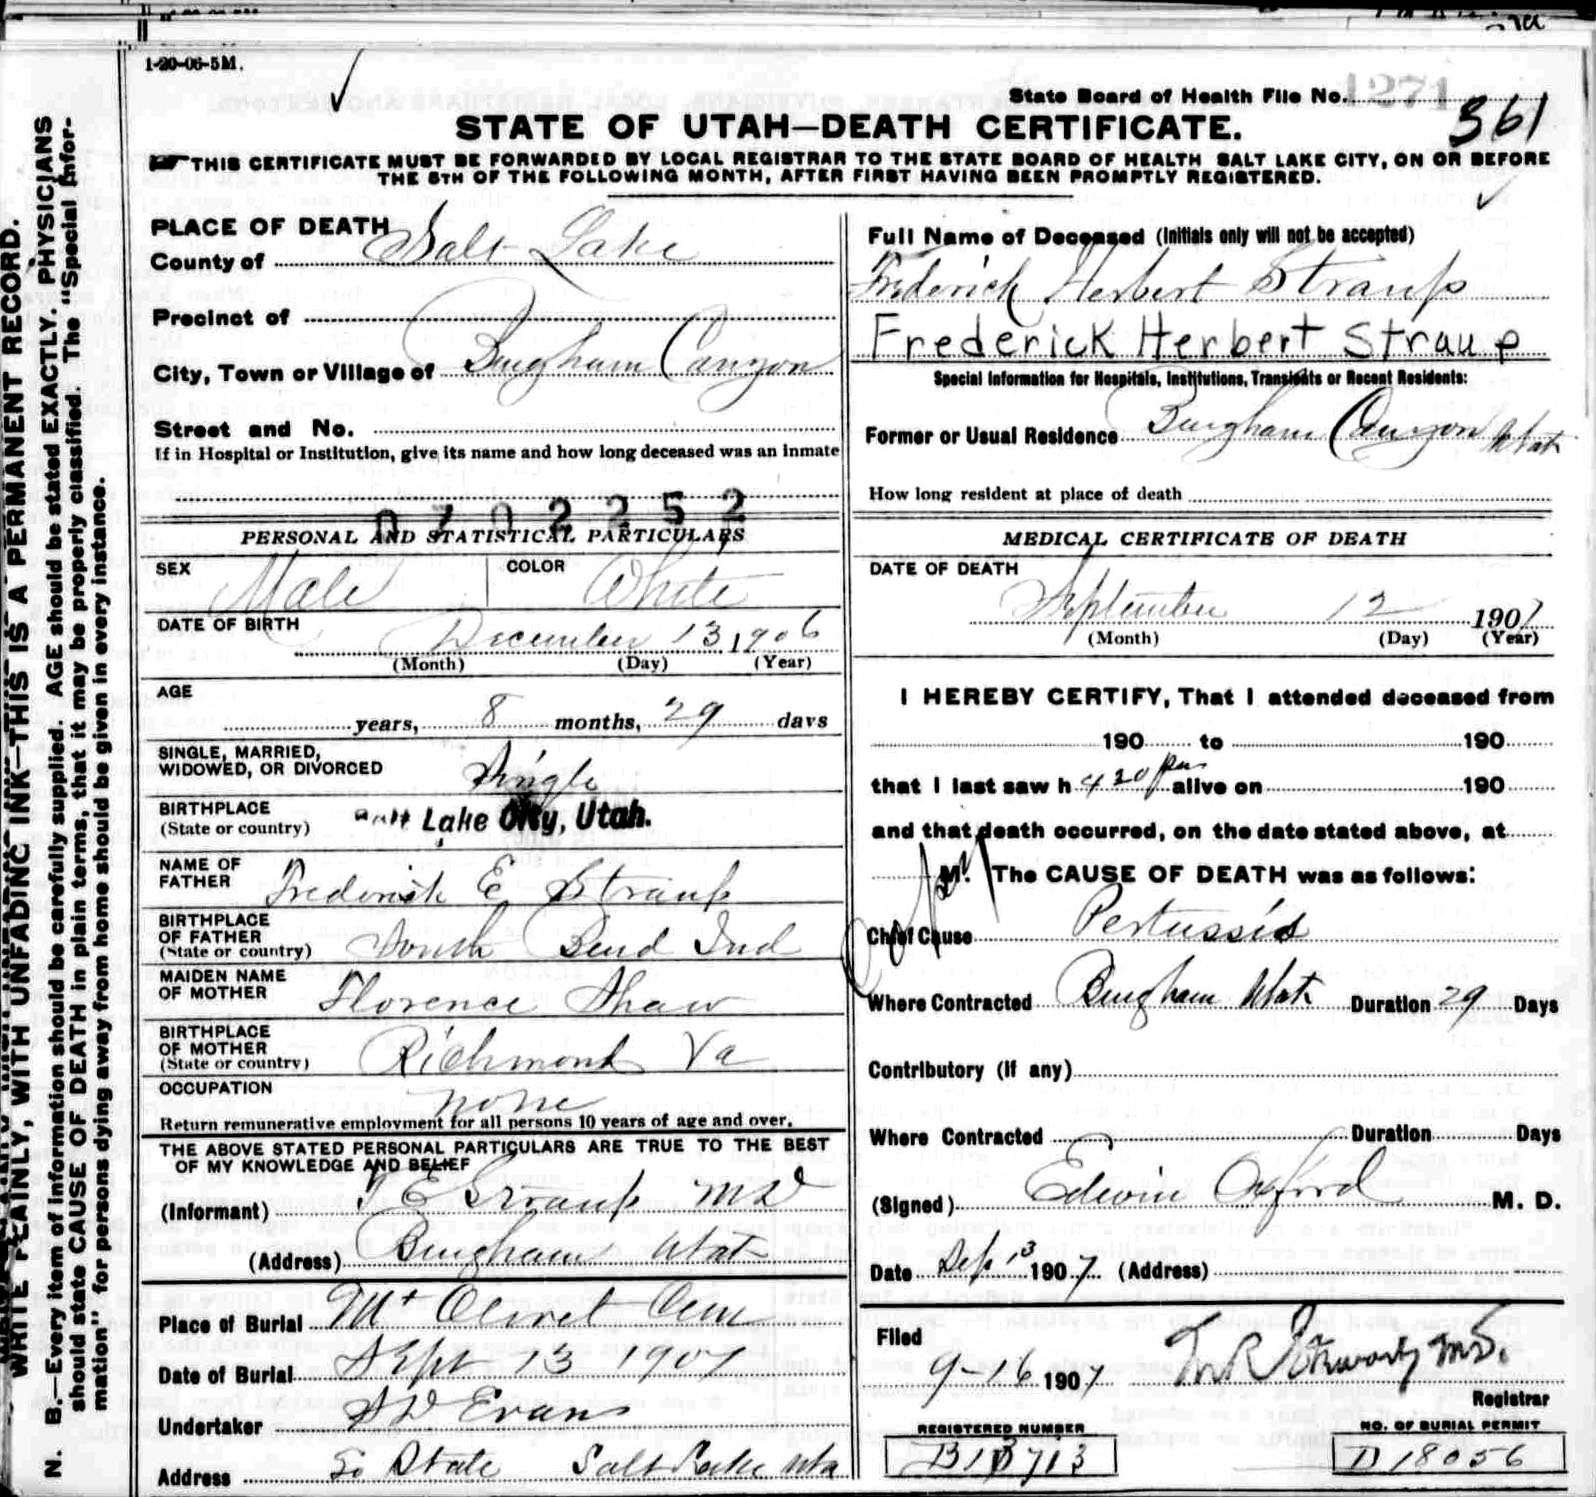 1-20-06-5M.
State Board of Health File No. 1271
361
STATE OF UTAH—DEATH CERTIFICATE.
THIS CERTIFICATE MUST BE FORWARDED BY LOCAL REGISTRAR TO THE STATE BOARD OF HEALTH SALT LAKE CITY, ON OR BEFORE
THE 5TH OF THE FOLLOWING MONTH, AFTER FIRST HAVING BEEN PROMPTLY REGISTERED.
WRITE PLAINLY, WITH UNFADING INK—THIS IS A PERMANENT RECORD.
N. B.—Every item of information should be carefully supplied. AGE should be stated EXACTLY. PHYSICIANS
should state CAUSE OF DEATH in plain terms, that it may be properly classified. The "Special Infor-
mation" for persons dying away from home should be given in every instance.
PLACE OF DEATH
County of Salt Lake
Precinct of
City, Town or Village of Bingham Canyon
Street and No.
If in Hospital or Institution, give its name and how long deceased was an inmate
0702252
PERSONAL AND STATISTICAL PARTICULARS
SEX Male COLOR White
DATE OF BIRTH December 13 1906
(Month) (Day) (Year)
AGE
years, 8 months, 29 days
SINGLE, MARRIED,
WIDOWED, OR DIVORCED Single
BIRTHPLACE
(State or country) Salt Lake City, Utah.
NAME OF
FATHER Frederick E Straup
BIRTHPLACE
OF FATHER
(State or country) South Bend Ind
MAIDEN NAME
OF MOTHER Florence Shaw
BIRTHPLACE
OF MOTHER
(State or country) Richmond Va
OCCUPATION none
Return remunerative employment for all persons 10 years of age and over.
THE ABOVE STATED PERSONAL PARTICULARS ARE TRUE TO THE BEST
OF MY KNOWLEDGE AND BELIEF
(Informant) F E Straup MD
(Address) Bingham Utah
Place of Burial Mt Olivet Cem
Date of Burial Sept 13 1907
Undertaker S D Evans
Address So State Salt Lake Uta
Full Name of Deceased (Initials only will not be accepted)
Frederick Herbert Straup
Frederick Herbert Straup
Special Information for Hospitals, Institutions, Transients or Recent Residents:
Former or Usual Residence Bingham Canyon Utah
How long resident at place of death
MEDICAL CERTIFICATE OF DEATH
DATE OF DEATH
September 12 1907
(Month) (Day) (Year)
I HEREBY CERTIFY, That I attended deceased from
190 to 190
that I last saw h 4 20 pm alive on 190
and that death occurred, on the date stated above, at
M. The CAUSE OF DEATH was as follows:
Chief Cause Pertussis
Where Contracted Bingham Utah Duration 29 Days
Contributory (If any)
Where Contracted Duration Days
(Signed) Edwin Oxford M. D.
Date Sep 13 1907 (Address)
Filed
9-16 1907 M.D.
Registrar
REGISTERED NUMBER
B13713
NO. OF BURIAL PERMIT
D 18056